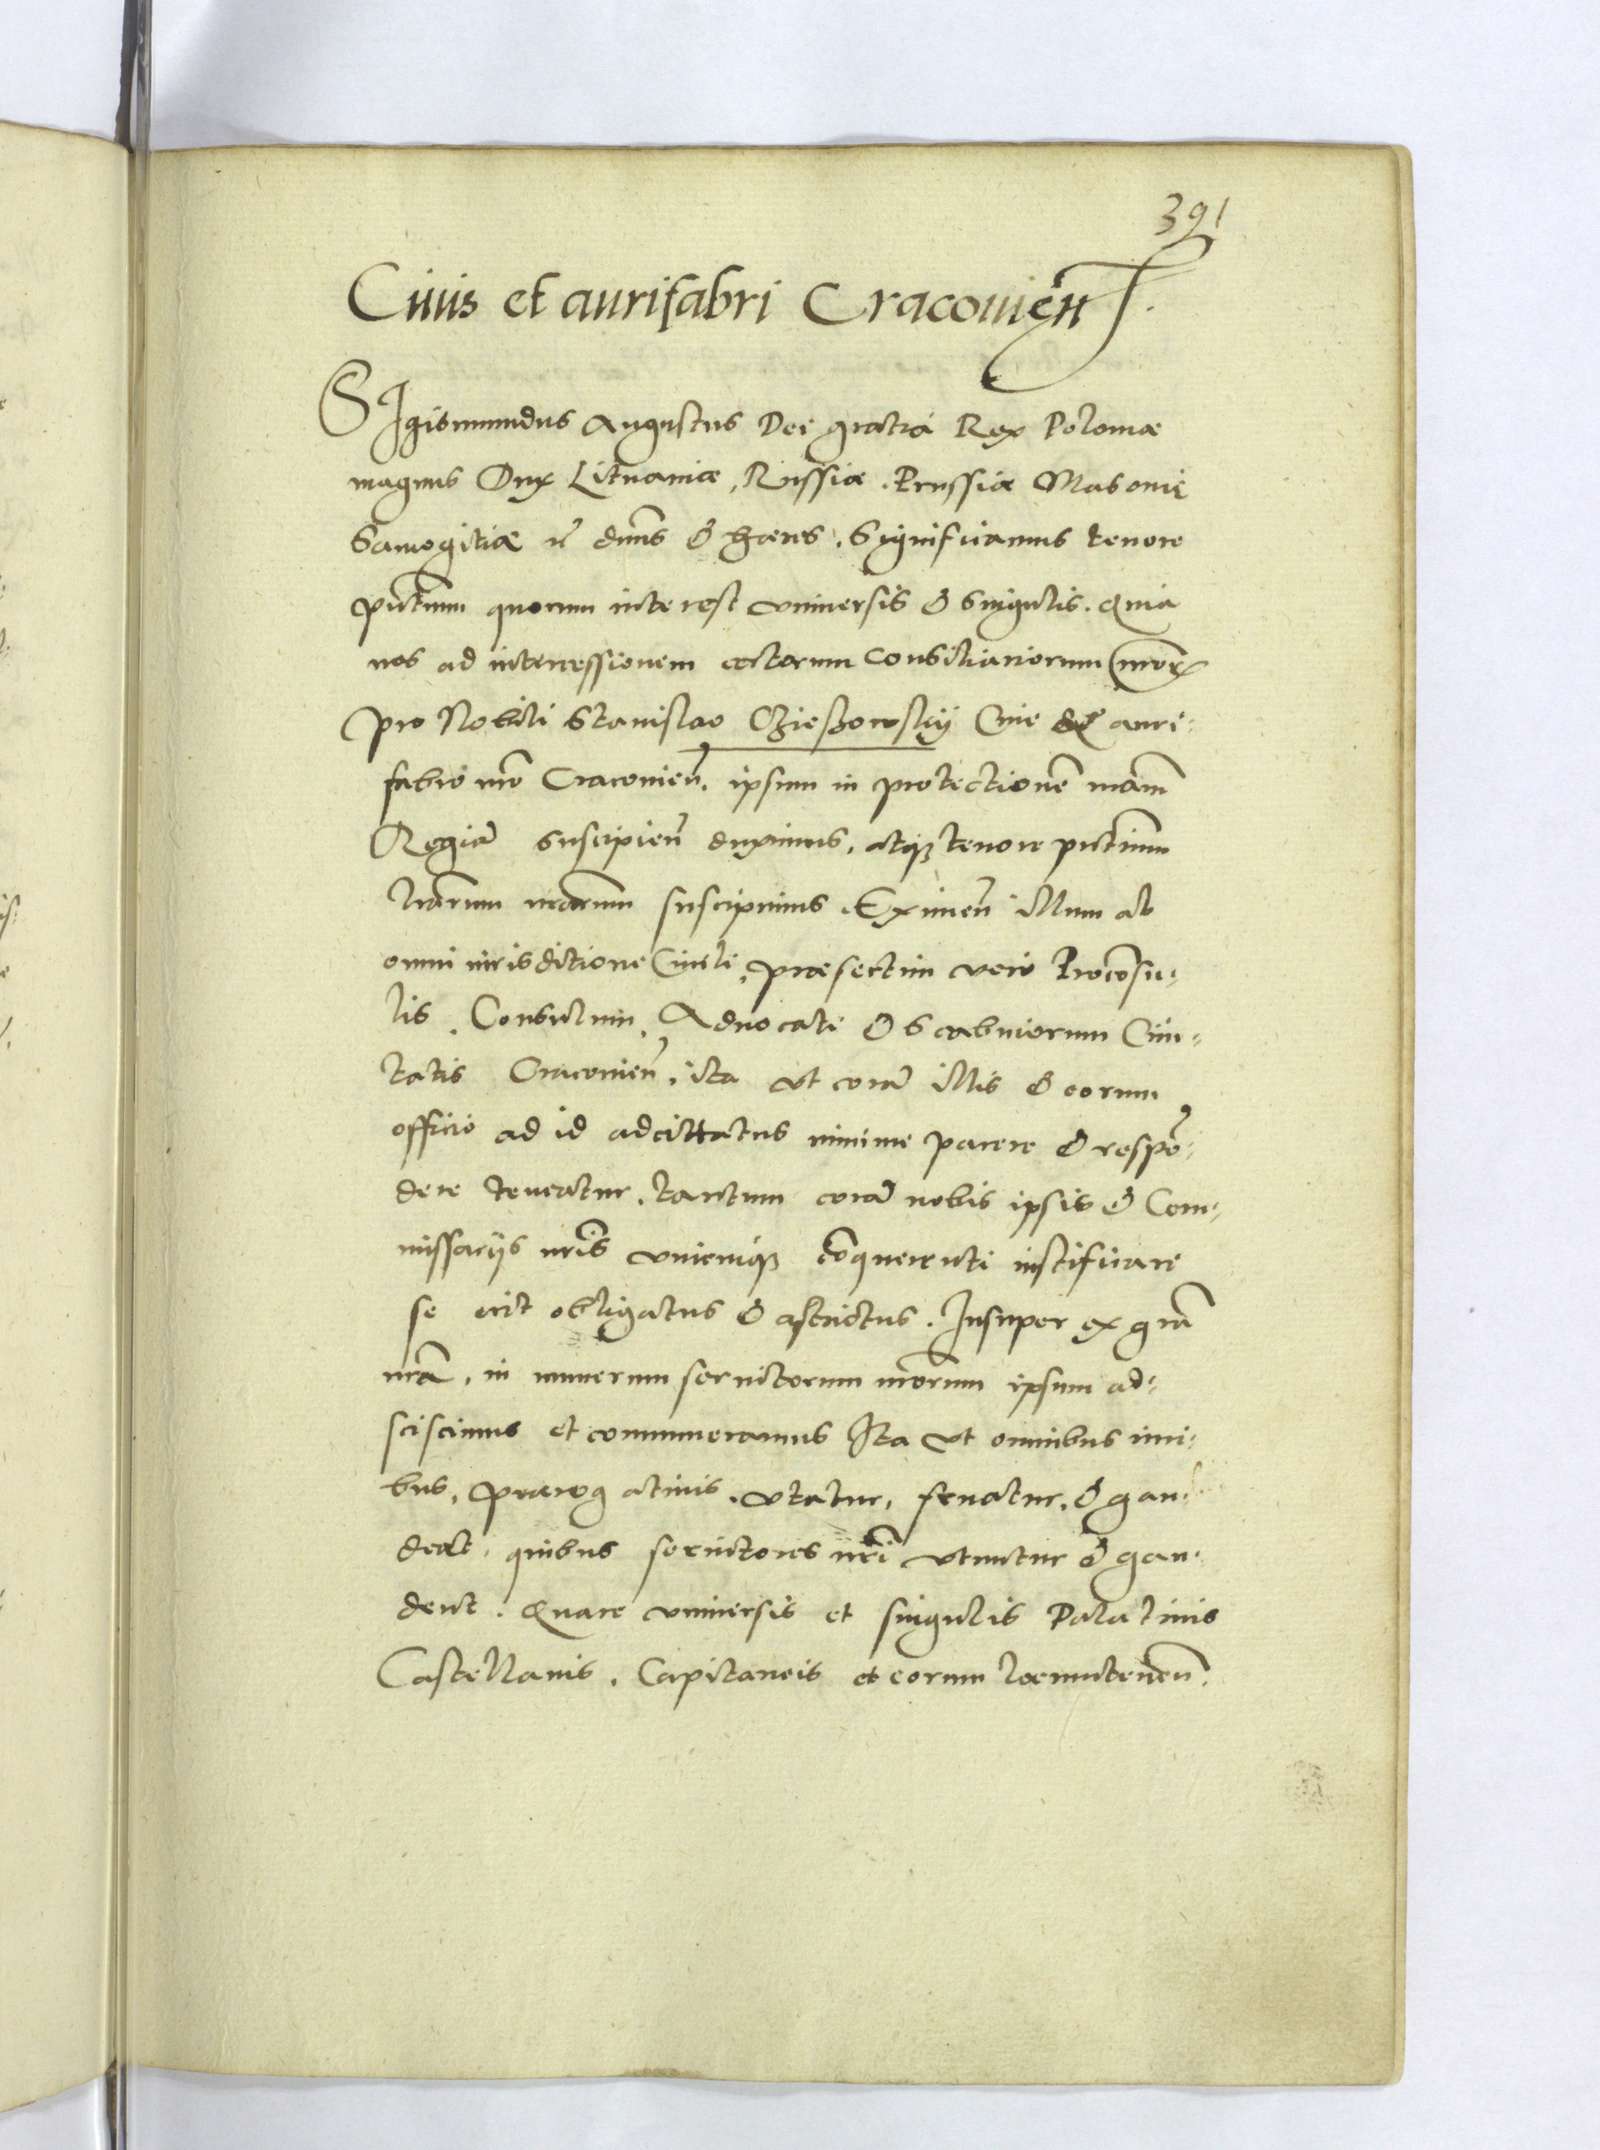 391
Ciuis et aurifabri Cracouien̄.
SIgismundus Augustus Dei gratia Rex Poloniæ
magnus Dux Lituaniæ, Russiæ. Prussiæ Masouię
Samogitiæ dnus & hæres. Significamus tenore
pñtium quorum interest vniuersis & singulis. Quia
nos ad intercessionem certorum Consiliariorum nrōr
pro Nobili Stanislao Czießowskij Ciue & auri-
fabro nrō Cracouien̄. ipsum in protectionē nrām
Regiā suscipien̄ duximus, atqꝫ tenore pñtium
lrārum nrārum suscipimus. Eximen̄ illum ab
omni iurisditione Ciuili, præsertim vero Procōnsu-
lis, Consulum, Aduocati & Scabinorum Ciui-
tatis Cracouien̄. ita vt corā illis & eorum
officio ad id adcittatus minime parere & respō-
dere teneatur. tantum corā nobis ipsis & Com-
missarijs nrīs vnicuiqꝫ cōquerenti iustificare
se erit obligatus & astrictus. Insuper ex grā
nrā, in numerum seruitorum nrōrum ipsum ad-
sciscimus et connumeramus Ita vt omnibus iuri-
bus, prærogatiuis vtatur, fruatur, & gau-
deat. quibus seruitores nrī vtuntur & gau-
dent. Quare vniuersis et singulis Palatinis
Castellanis, Capitaneis et eorum locumtenen̄.